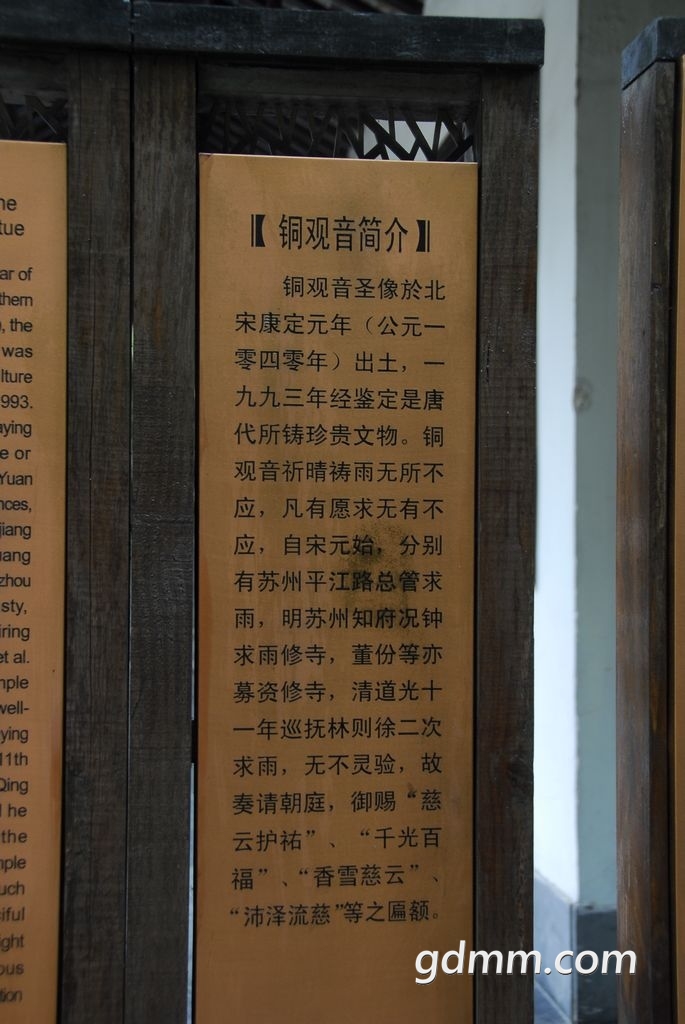 he
tue
ar of
thern
, the
was
lture
993.
aying
e or
Yuan
nces,
jiang
uang
zhou
sty,
iring
et al.
nple
well-
ying
11th
Qing
he
the
mple
uch
ciful
ight
ous
tion
【铜观音简介】
铜观音圣像於北
宋康定元年（公元一
零四零年）出土，一
九九三年经鉴定是唐
代所铸珍贵文物。铜
观音祈晴祷雨无所不
应，凡有愿求无有不
应，自宋元始，分别
有苏州平江路总管求
雨，明苏州知府况钟
求雨修寺，董份等亦
募资修寺，清道光十
一年巡抚林则徐二次
求雨，无不灵验，故
奏请朝庭，御赐“慈
云护祐”、“千光百
福”、“香雪慈云”、
“沛泽流慈”等之匾额。
gdmm.com